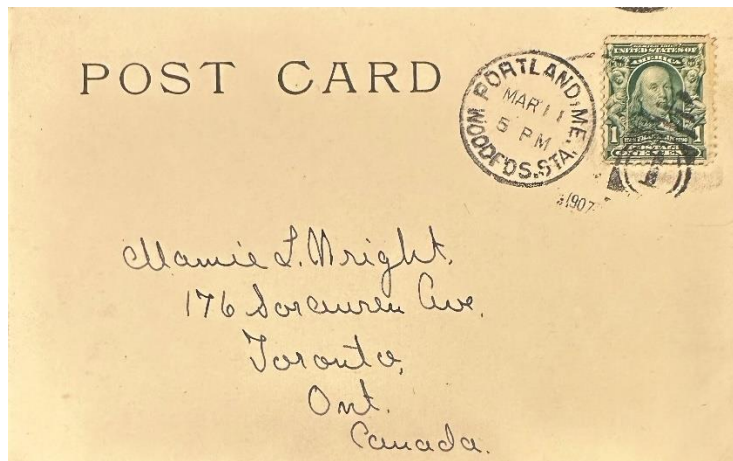 POST CARD
PORTLAND, ME.
MAR 11
5 PM
WOODF'DS. STA.
1907
SERIES 1902
UNITED STATES OF
AMERICA
1 1
POSTAGE
ONE CENT
Mamie L. Wright,
176 Sorauren Ave,
Toronto,
Ont.
Canada.